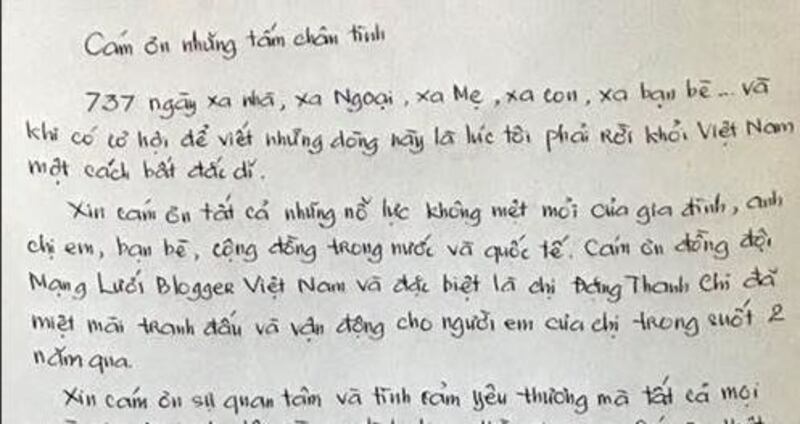 Cám ơn những tấm chân tình
737 ngày xa nhà, xa Ngoại, xa Mẹ, xa con, xa bạn bè... và
khi có cơ hội để viết những dòng này là lúc tôi phải rời khỏi Việt Nam
một cách bất đắc dĩ.
Xin cám ơn tất cả những nỗ lực không mệt mỏi của gia đình, anh
chị em, bạn bè, cộng đồng trong nước và quốc tế. Cám ơn đồng đội
Mạng Lưới Blogger Việt Nam và đặc biệt là chị Đặng Thanh Chi đã
miệt mài tranh đấu và vận động cho người em của chị trong suốt 2
năm qua.
Xin cám ơn sự quan tâm và tình cảm yêu thương mà tất cả mọi